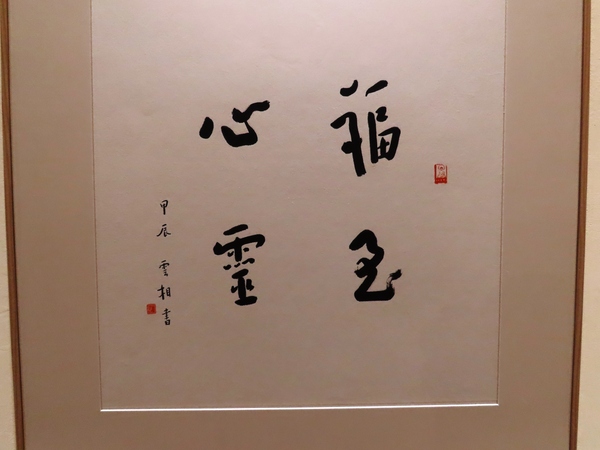 福至
心靈
甲辰 雲相書